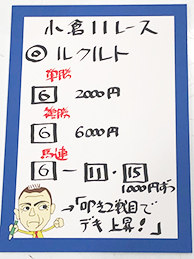 小倉11レース
◎ルクルト
単勝
6 2000円
複勝
6 6000円
馬連
6 - 11・15
1000円ずつ
→「叩き2戦目で
デキ上昇!」